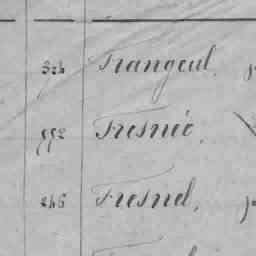 324 Frangeul,
552 Fresnéc,
246 Fresnel,